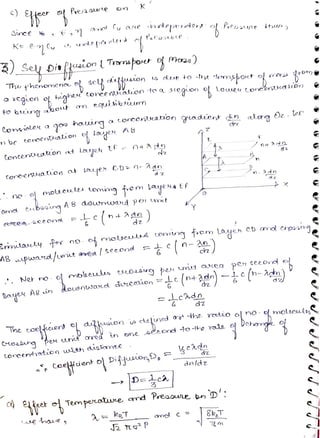 c) Effect of Pressure on K
Since η and Cv are independent of Pressure thus,
K = η Cv is independent of Pressure.
3) Self Diffusion (Transport of Mass)
The phenomena of self diffusion is due to the transport of mass from
a region of higher concentration to a region of lower concentration
to bring about an equilibrium
Consider a gas having a concentration gradient dn/dz along Oz. Let
n be concentration of layer AB
Concentration at layer EF = n+λ dn/dz
Concentration at layer CD = n-λ dn/dz
∴ no of molecules coming from layer EF
and crossing AB downward per unit
area second = 1/6 c (n+λ dn/dz)
Similarly for no of molecules coming from layer CD and crossing
AB upward/unit area/second = 1/6 c (n-λ dn/dz)
∴ Net no of molecules crossing per unit area per second of
layer AB in downward direction = 1/6 c (n+λ dn/dz) - 1/6 c (n-λ dn/dz)
= 1/3 c λ dn/dz
The coefficient of diffusion is defined as the ratio of no of molecules
crossing per unit area in one second to the rate of change of
concentration with distance.
∴ Coefficient of Diffusion, D = 1/3 c λ dn/dz / dn/dz
→ D = 1/3 c λ
a) Effect of Temperature and Pressure on 'D':
we have, λ = kBT / √2 π σ² P and c = √8kBT / πm